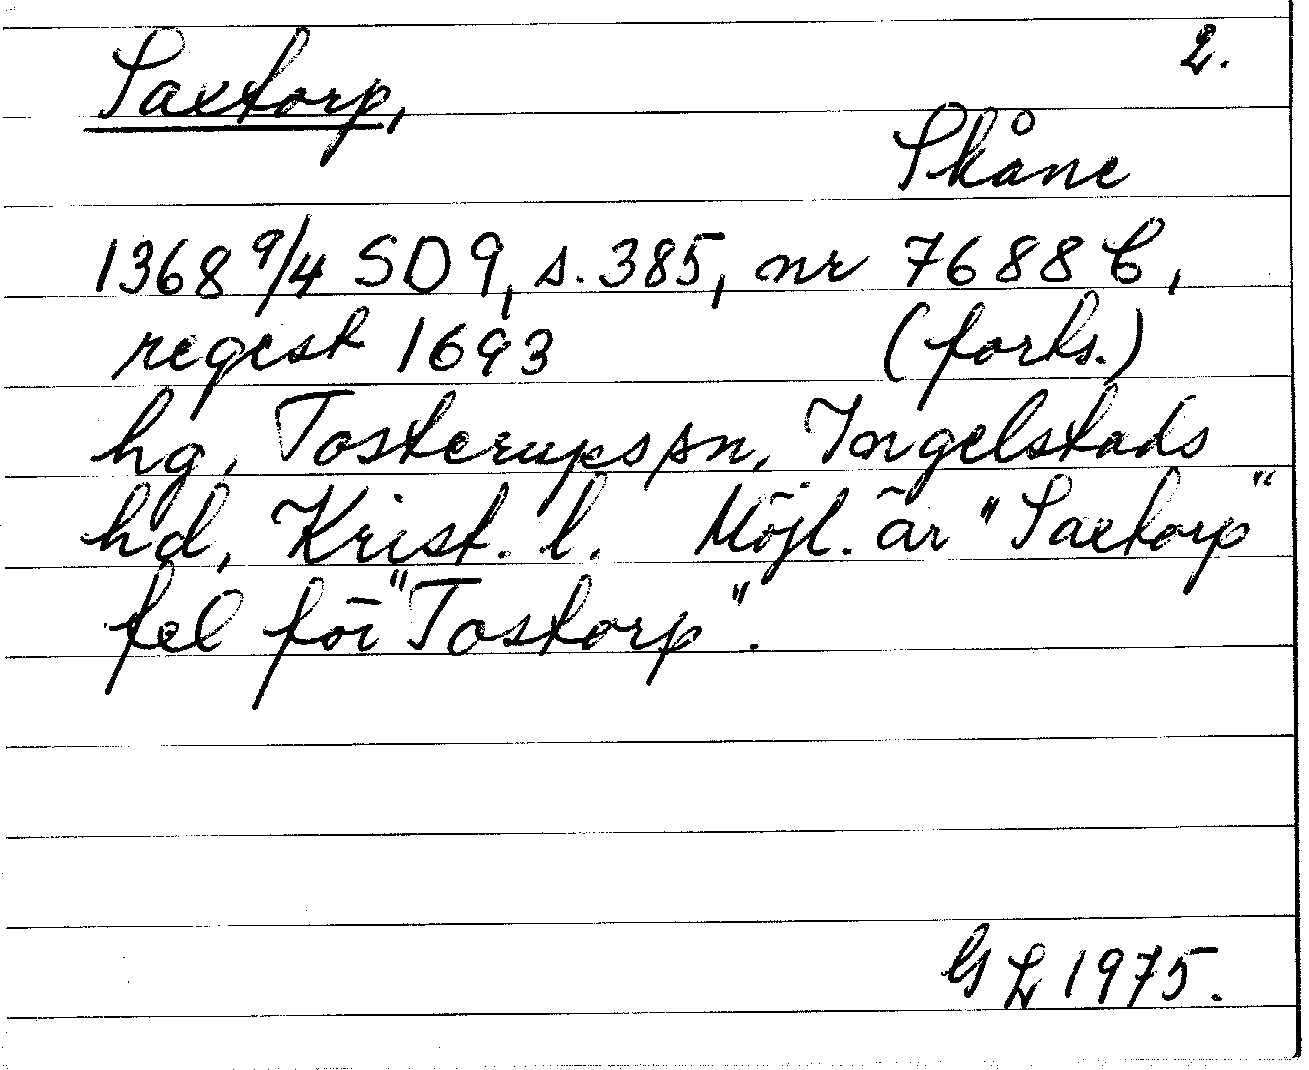 2.
Saxtorp,
Skåne
1368 9/4 SD 9, s. 385, nr 7688 C,
regest 1693 (forts.)
hg, Tosterups sn, Ingelstads
hd, Krist. l. Möjl. är "Saxtorp"
fel för "Tostorp".
GL 1975.